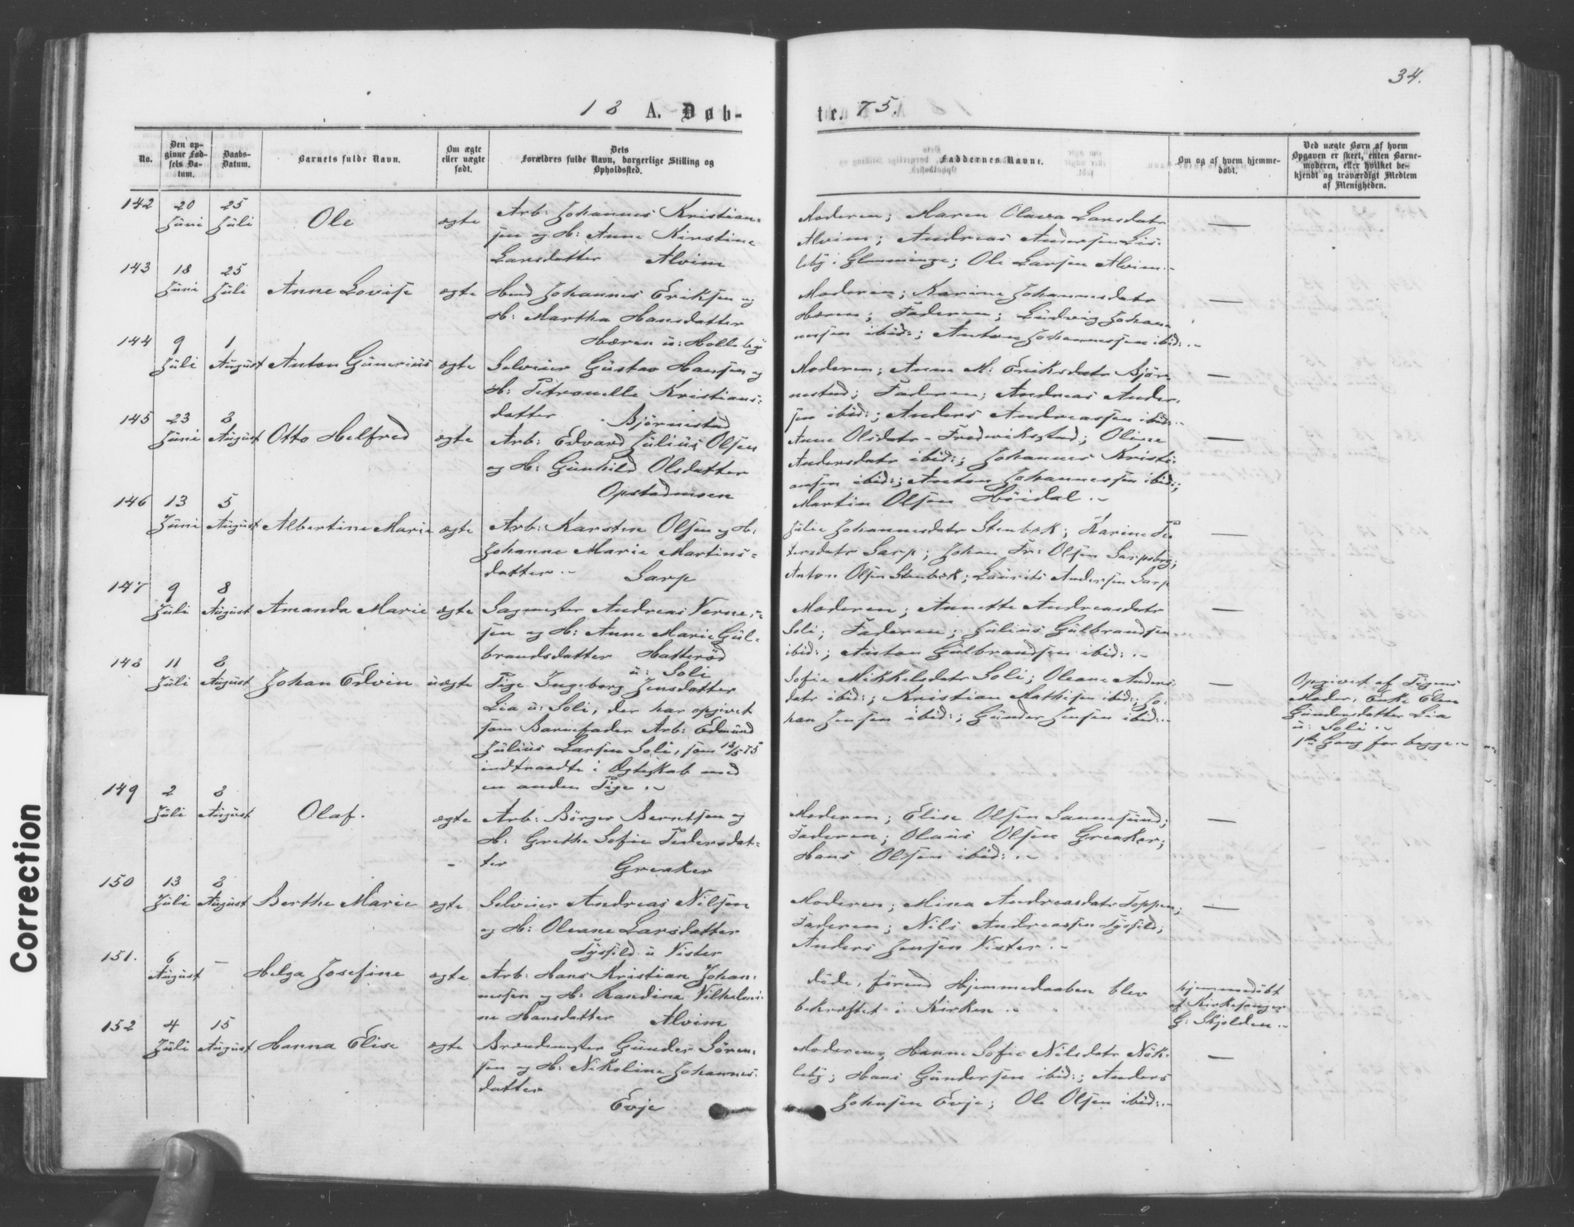 34.
18 A. Døb-
te. 75.
No.
Den op-
givne Fød-
sels Da-
tum.
Daabs-
Datum.
Barnets fulde Navn.
Om ægte
eller uægte
født.
Dets
Forældres fulde Navn, borgerlige Stilling og
Opholdssted.
Faddernes Navne.
Om og af hvem hjemme-
døbt.
Ved uægte Børn af hvem
Opgaven er skeet, enten Barne-
moderen, eller hvilket be-
kjendt og troværdigt Medlem
af Menigheden.
142 20 Juni 25 Juli Ole ægte
Arb: Johannes Kristian-
sen og H: Anne Kirstine
Larsdatter Alvim
Moderen; Maren Olava Larsdatr
Alvim; Andreas Andersen Lis-
leby i Glemminge; Ole Larsen Alvim.-
—
143 18 Juni 25 Juli Anne Lovise ægte
Hmd Johannes Eriksen og
H: Martha Hansdatter
Hæren u: Holleby
Moderen; Karine Johannesdatr
Hæren; Faderen; Ludvig Johan-
nessen ibid:; Anton Johannessen ibid:.-
—
144 9 Juli 1 August Anton Gunerius ægte
Selveier Gustav Hansen og
H: Petronelle Kristians-
datter Bjørnstad
Moderen; Anne M: Eriksdatr Bjør-
nestad; Faderen; Andreas Ander-
sen ibid:; Anders Andreassen ibid:.-
—
145 23 Juni 8 August Otto Helfred ægte
Arb: Edvard Julius Olsen
og H: Gunhild Olsdatter
Opstadmoen
Anne Olsdatr - Fredrikstad; Oline
Andersdatr ibid:; Johannes Kristi-
ansen ibid:; Anton Johannessen ibid:;
Martin Olsen Høidal.-
—
146 13 Juni 5 August Albertine Marie ægte
Arb: Karsten Olsen og H:
Johanne Marie Martins-
datter.- Sarp
Julie Johannesdatr Stenbæk; Karine Pe-
tersdatr Sarp; Johan Fr: Olsen Sarpsborg;
Anton Olsen Stenbæk; Laurits Andersen Sarp
—
147 9 Juli 8 August Amanda Marie ægte
Sagmester Andreas Verne-
sen og H: Anne Marie Gul-
brandsdatter Hatterød
u: Soli
Moderen; Annette Andreasdatr
Soli; Faderen; Julius Gulbrandsen
ibid:; Anton Gulbrandsen ibid:.-
—
148 11 Juli 8 August Johan Edvin uægte
Pige Ingeborg Jensdatter
Lia u: Soli, der har opgivet
som Barnefader Arb: Edmund
Julius Larsen Soli, som
indtraadte i Ægteskab med
en anden Pige.-
Sofie Mikkelsdatr Soli; Oleane Anders-
datr ibid:; Kristian Mathisen ibid:; Jo-
han Jensen ibid:; Gunder Jensen ibid:.-
—
Opgivet af Pigens
Moder, Enke Elen
Gundersdatter Lia
u: Soli.-
1ste Gang for begge.-
149 2 Juli 8 August Olaf. ægte
Arb: Børger Berntsen og
H: Grethe Sofie Pedersdat-
ter Greaker
Moderen; Elise Olsen Sannesund;
Faderen; Olaus Olsen Greaker;
Hans Olsen ibid:.-
—
150 13 Juli 8 August Berthe Marie ægte
Selveier Andreas Nilsen
og H: Oleane Larsdatter
u Vister
Moderen; Mina Andreasdatr Toppen;
Faderen; Nils Andreassen
Anders Jensen Vister.-
—
151. 6 August — Helga Josefine ægte
Arb: Hans Kristian Johan-
nessen og H: Randine Vilhelmi-
ne Hansdatter Alvim
døde, førend Hjemmedaaben blev
bekræftet i Kirken.-
hjemmedøbt
af Kirkesanger
G: Skjolden.-
152 4 Juli 15 August Hanna Elise ægte
Brændemester Gunder Søren-
sen og H: Nikoline Johannes-
datter
Evje
Moderen; Hanne Sofie Nilsdatr Nok-
leby; Hans Gundersen ibid:; Anders
Johnsen Evje; Ole Olsen ibid:.-
—
Correction